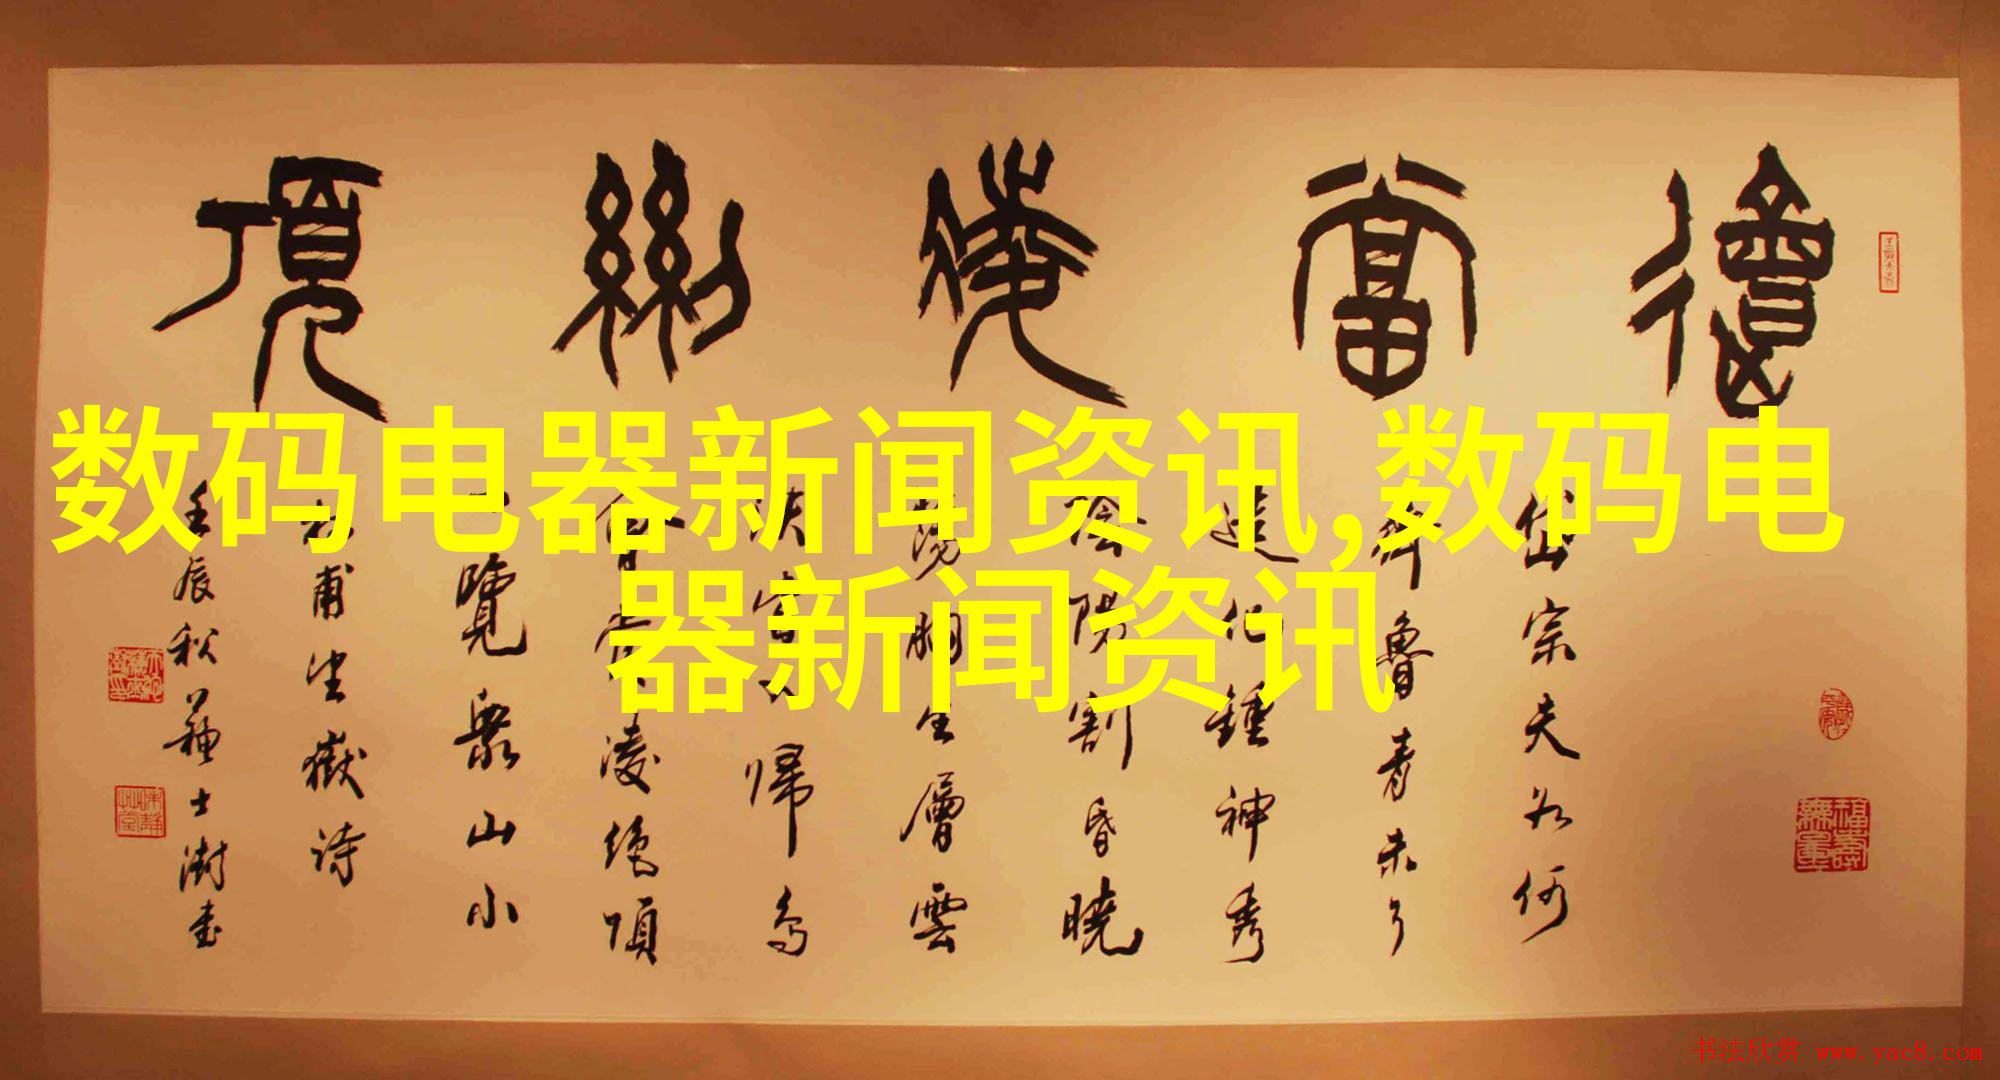 會當凌絕頂
数码电器新闻资讯,数码电
器新闻资讯
岱宗夫如何
齊魯青未了
造化鍾神秀
陰陽割昏曉
蕩胸生層雲
決眥入歸鳥
會當凌絕頂
一覽眾山小
杜甫望嶽詩
壬辰秋蘇士澍書
福壽無量
书法欣赏 www.yac8.com